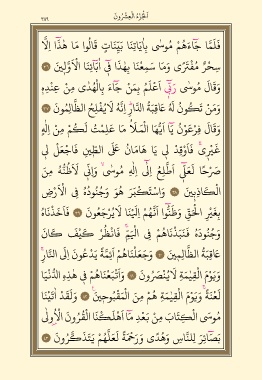 الجزء العشرون ٣٨٩
فَلَمَّا جَاءَهُمْ مُوسٰى بِاٰيَاتِنَا بَيِّنَاتٍ قَالُوا مَا هٰذَٓا اِلَّا
سِحْرٌ مُفْتَرًى وَمَا سَمِعْنَا بِهٰذَا فٖٓى اٰبَٓائِنَا الْاَوَّلٖينَ ٣٦
وَقَالَ مُوسٰى رَبّٖٓى اَعْلَمُ بِمَنْ جَٓاءَ بِالْهُدٰى مِنْ عِنْدِهٖ
وَمَنْ تَكُونُ لَهُ عَاقِبَةُ الدَّارِ اِنَّهُ لَا يُفْلِحُ الظَّالِمُونَ ٣٧
وَقَالَ فِرْعَوْنُ يَٓا اَيُّهَا الْمَلَأُ مَا عَلِمْتُ لَكُمْ مِنْ اِلٰهٍ
غَيْرٖى فَاَوْقِدْ لٖى يَا هَامَانُ عَلَى الطّٖينِ فَاجْعَلْ لٖى
صَرْحًا لَعَلّٖٓى اَطَّلِعُ اِلٰٓى اِلٰهِ مُوسٰى وَاِنّٖى لَاَظُنُّهُ مِنَ
الْكَاذِبٖينَ ٣٨ وَاسْتَكْبَرَ هُوَ وَجُنُودُهُ فِى الْاَرْضِ
بِغَيْرِ الْحَقِّ وَظَنُّٓوا اَنَّهُمْ اِلَيْنَا لَا يُرْجَعُونَ ٣٩ فَاَخَذْنَاهُ
وَجُنُودَهُ فَنَبَذْنَاهُمْ فِى الْيَمِّ فَانْظُرْ كَيْفَ كَانَ
عَاقِبَةُ الظَّالِمٖينَ ٤٠ وَجَعَلْنَاهُمْ اَئِمَّةً يَدْعُونَ اِلَى النَّارِ
وَيَوْمَ الْقِيٰمَةِ لَا يُنْصَرُونَ ٤١ وَاَتْبَعْنَاهُمْ فٖى هٰذِهِ الدُّنْيَا
لَعْنَةً وَيَوْمَ الْقِيٰمَةِ هُمْ مِنَ الْمَقْبُوحٖينَ ٤٢ وَلَقَدْ اٰتَيْنَا
مُوسَى الْكِتَابَ مِنْ بَعْدِ مَٓا اَهْلَكْنَا الْقُرُونَ الْاُولٰى
بَصَٓائِرَ لِلنَّاسِ وَهُدًى وَرَحْمَةً لَعَلَّهُمْ يَتَذَكَّرُونَ ٤٣